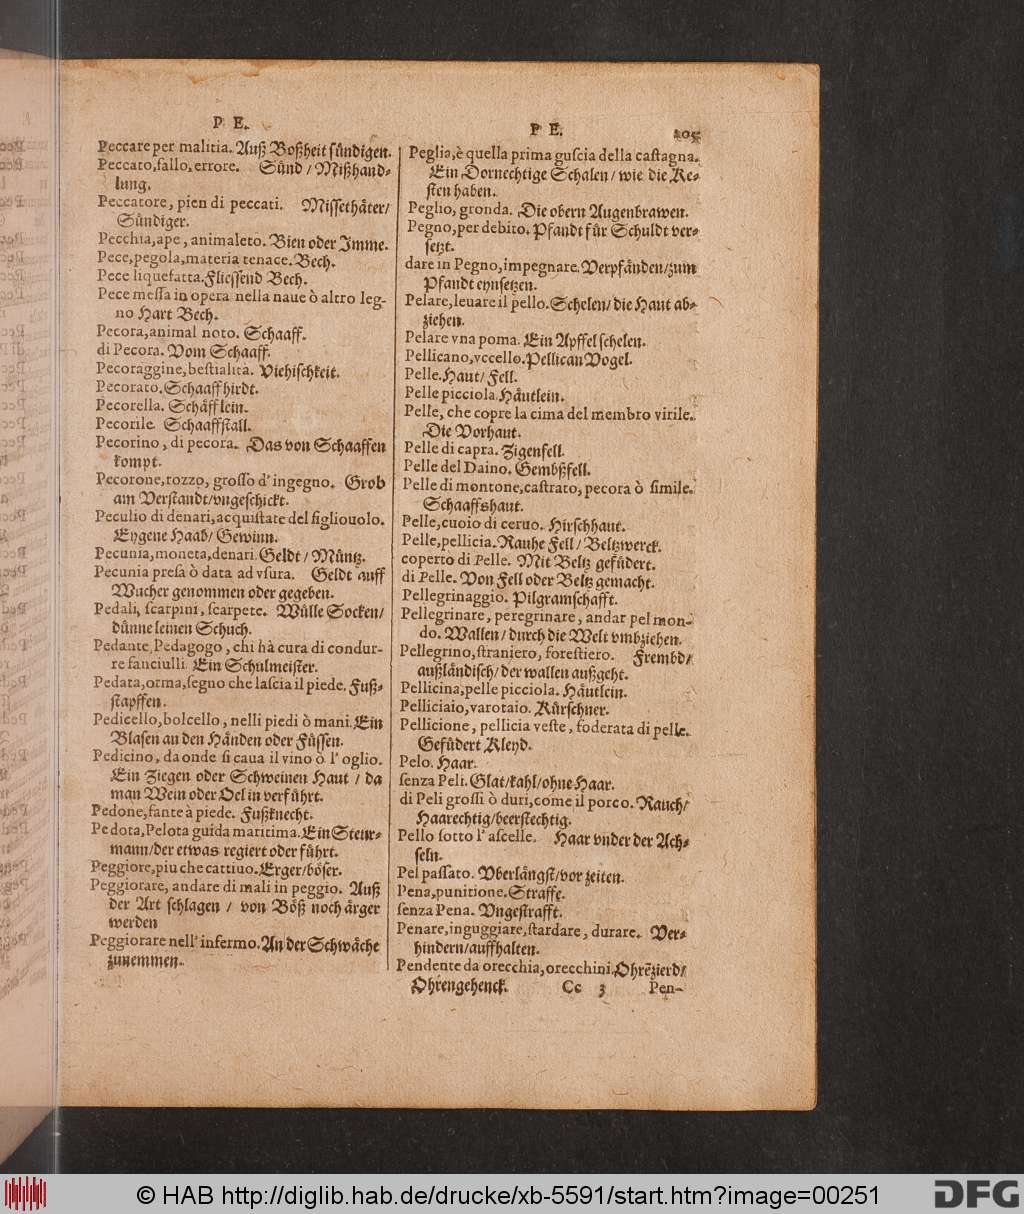 P E.
Peccare per malitia. Auß Boßheit sündigen.
Peccato, fallo, errore. Sünd / Mißhand-
lung.
Peccatore, pien di peccati. Missethäter/
Sündiger.
Pecchia, ape, animaleto. Bien oder Imme.
Pece, pegola, materia tenace. Bech.
Pece liquefatta. Fliessend Bech.
Pece messa in opera nella naue ò altro leg-
no Hart Bech.
Pecora, animal noto. Schaaff.
di Pecora. Vom Schaaff.
Pecoraggine, bestialità. Viehischkeit.
Pecorato. Schaaffhirdt.
Pecorella. Schäfflein.
Pecorile. Schaaffstall.
Pecorino, di pecora. Das von Schaaffen
kompt.
Pecorone, rozzo, grosso d' ingegno. Grob
am Verstandt/vngeschickt.
Peculio di denari, acquistate del figliouolo.
Eygene Haab/ Gewinn.
Pecunia, moneta, denari. Geldt / Müntz.
Pecunia presa ò data ad vsura. Geldt auff
Wucher genommen oder gegeben.
Pedali, scarpini, scarpete. Wülle Socken/
dünne leinen Schuch.
Pedante, Pedagogo, chi hà cura di condur-
re fanciulli. Ein Schulmeister.
Pedata, orma, segno che lascia il piede. Fuß-
stapffen.
Pedicello, bolcello, nelli piedi ò mani. Ein
Blasen an den Händen oder Füssen.
Pedicino, da onde si caua il vino ò l' oglio.
Ein Ziegen oder Schweinen Haut / da
man Wein oder Oel in verführt.
Pedone, fante à piede. Fußknecht.
Pedota, Pelota guida maritima. Ein Steur-
mann/der etwas regiert oder führt.
Peggiore, piu che cattiuo. Erger/böser.
Peggiorare, andare di mali in peggio. Auß
der Art schlagen / von Böß noch ärger
werden
Peggiorare nell' infermo. An der Schwäche
zunemmen.
P E. 205
Peglia, è quella prima guscia della castagna.
Ein Dornechtige Schalen / wie die Ke-
sten haben.
Peglio, gronda. Die obern Augenbrawen.
Pegno, per debito. Pfandt für Schuldt ver-
setzt.
dare in Pegno, impegnare. Verpfänden/zum
Pfandt eynsetzen.
Pelare, leuare il pello. Schelen/ die Haut ab-
ziehen.
Pelare vna poma. Ein Apffel schelen.
Pellicano, vccello. Pellican Vogel.
Pelle. Haut/ Fell.
Pelle picciola. Häutlein.
Pelle, che copre la cima del membro virile.
Die Vorhaut.
Pelle di capra. Zigenfell.
Pelle del Daino. Gembßfell.
Pelle di montone, castrato, pecora ò simile.
Schaaffshaut.
Pelle, cuoio di ceruo. Hirschhaut.
Pelle, pellicia. Rauhe Fell / Beltzwerck.
coperto di Pelle. Mit Beltz gefüdert.
di Pelle. Von Fell oder Beltz gemacht.
Pellegrinaggio. Pilgramschafft.
Pellegrinare, peregrinare, andar pel mon-
do. Wallen / durch die Welt vmbziehen.
Pellegrino, straniero, forestiero. Frembd/
außländisch/ der wallen außgeht.
Pellicina, pelle picciola. Häutlein.
Pelliciaio, varotaio. Kürschner.
Pellicione, pellicia veste, foderata di pelle.
Gefüdert Kleyd.
Pelo. Haar.
senza Peli. Glat/kahl/ohne Haar.
di Peli grossi ò duri, come il porco. Rauch/
Haarechtig/beerstechtig.
Pello sotto l' ascelle. Haar vnder der Ach-
seln.
Pel passato. Vberlängst/vor zeiten.
Pena, punitione. Straffe.
senza Pena. Vngestrafft.
Penare, inguggiare, stardare, durare. Ver-
hindern/auffhalten.
Pendente da orecchia, orecchini. Ohrẽzierd/
Ohrengehenck.
Cc 3 Pen-
© HAB http://diglib.hab.de/drucke/xb-5591/start.htm?image=00251
DFG